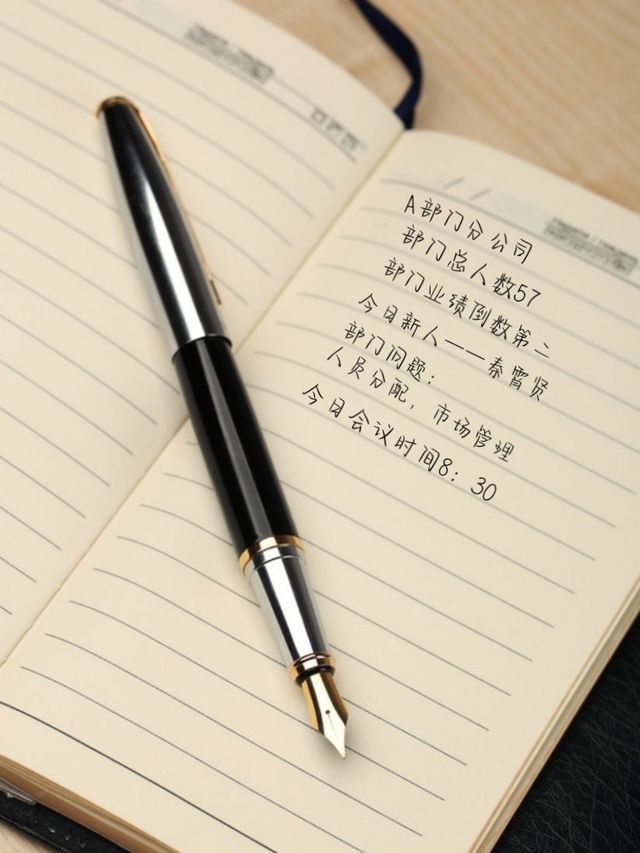 A部门分公司
部门总人数57
部门业绩倒数第二
今日新人——秦霄贤
部门问题：
人员分配，市场管理
今日会议时间8：30